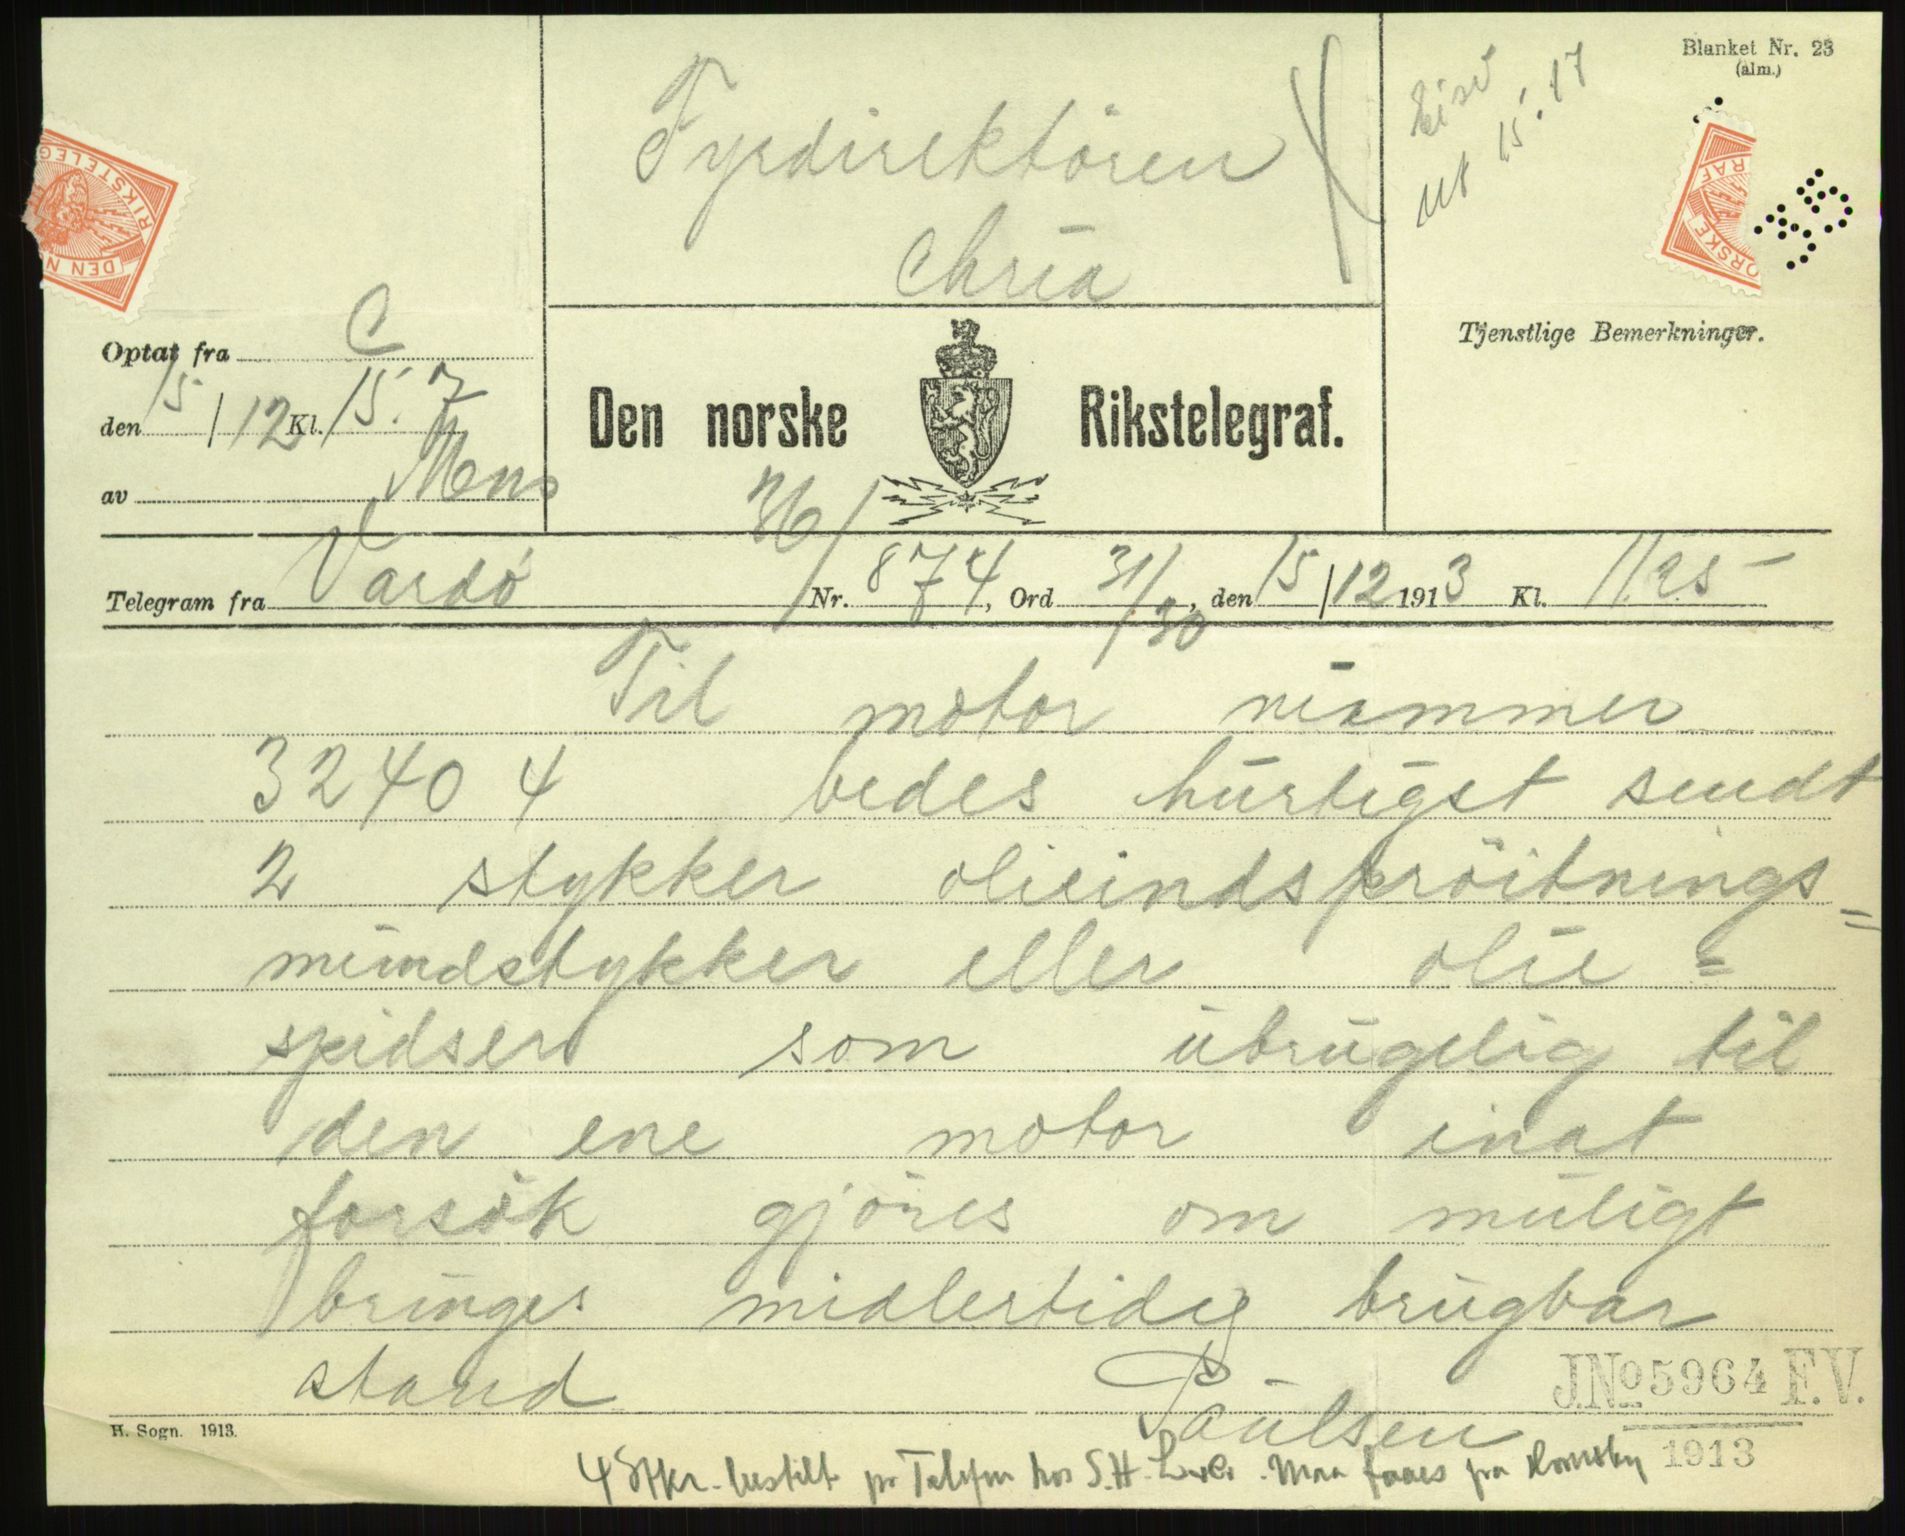 Blanket Nr. 23
(alm.)
Fyrdirektören
Chria
15.17
Optat fra C
den 15/12 Kl. 15.7
av Mens
Den norske Rikstelegraf.
Tjenstlige Bemerkninger.
Telegram fra Vardö Nr. 874, Ord 31/30, den 15/12 1913 Kl. 11.25
Til motor nummer
32404 bedes hurtigst sendt
2 stykker olieindspröitnings=
mundstykker eller olie=
spidser som ubrugelig til
den ene motor inat
forsök gjöres om muligt
bringes midlertidig brugbar
stand
Paulsen
J.No 5964 F.V.
1913
H. Sogn. 1913.
4 Stkr. bestilt pr Telefon hos S.H. Maa faaes fra Hornsby